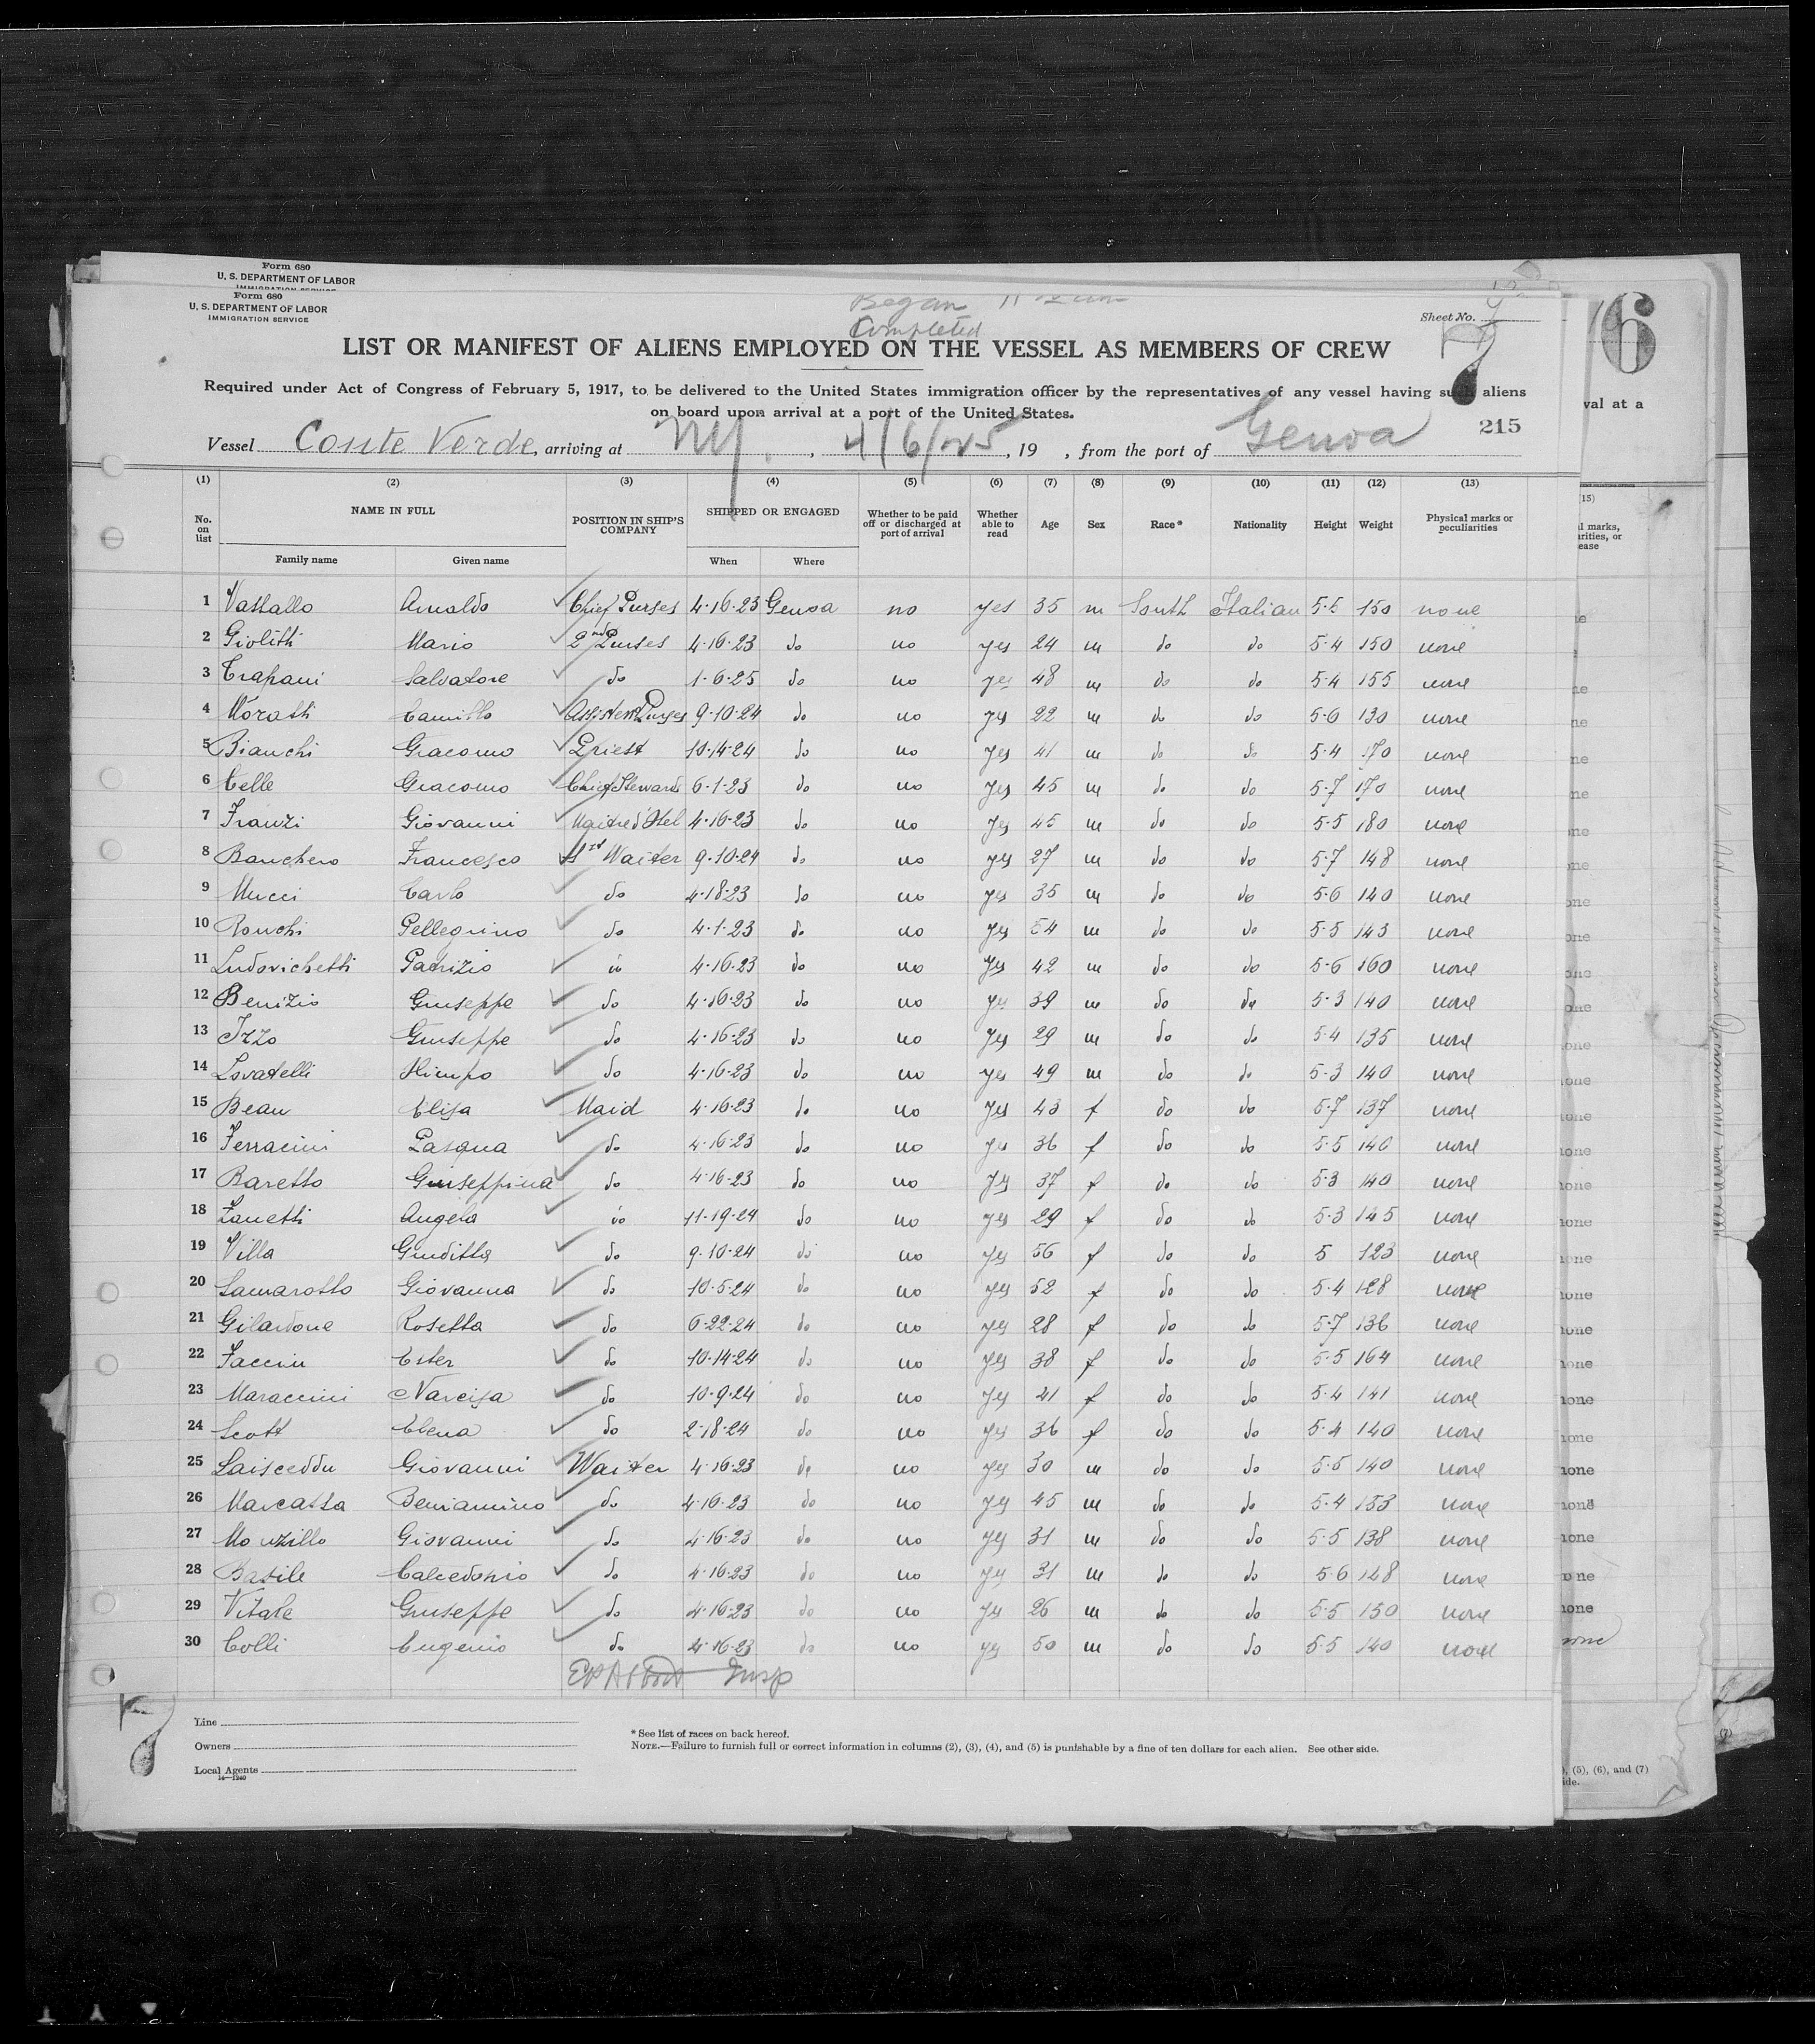 Form 680
U. S. DEPARTMENT OF LABOR
Form 680
U. S. DEPARTMENT OF LABOR
IMMIGRATION SERVICE
Began
Completed
Sheet No.
7
6
LIST OR MANIFEST OF ALIENS EMPLOYED ON THE VESSEL AS MEMBERS OF CREW
Required under Act of Congress of February 5, 1917, to be delivered to the United States immigration officer by the representatives of any vessel having such aliens
on board upon arrival at a port of the United States.
val at a
215
Vessel Conte Verde, arriving at NY. , 4/6/25, 19 , from the port of Genoa
(1) (2) (3) (4) (5) (6) (7) (8) (9) (10) (11) (12) (13)
No. on list NAME IN FULL POSITION IN SHIP'S COMPANY SHIPPED OR ENGAGED Whether to be paid off or discharged at port of arrival Whether able to read Age Sex Race* Nationality Height Weight Physical marks or peculiarities
Family name Given name When Where
1 Vassallo Arnaldo Chief Purses 4-16-23 Genoa no yes 35 m South Italian 5-5 150 none
2 Giolitti Mario 2nd Purses 4-16-23 do no yes 24 m do do 5-4 150 none
3 Trapani Salvatore do 1-6-25 do no yes 48 m do do 5-4 155 none
4 Moratti Camillo Assistent Purses 9-10-24 do no yes 22 m do do 5-6 130 none
5 Bianchi Giacomo Priest 10-14-24 do no yes 41 m do do 5-4 170 none
6 Celle Giacomo Chief Steward 6-1-23 do no yes 45 m do do 5-7 170 none
7 Franzi Giovanni Maitre d'Hotel 4-16-23 do no yes 45 m do do 5-5 180 none
8 Banchero Francesco 1st Waiter 9-10-24 do no yes 27 m do do 5-7 148 none
9 Mucci Carlo do 4-18-23 do no yes 35 m do do 5-6 140 none
10 Ronchi Pellegrino do 4-1-23 do no yes 54 m do do 5-5 143 none
11 Ludovichetti Patrizio do 4-16-23 do no yes 42 m do do 5-6 160 none
12 Benizio Giuseppe do 4-16-23 do no yes 39 m do do 5-3 140 none
13 Izzo Giuseppe do 4-16-23 do no yes 29 m do do 5-4 135 none
14 Lovatelli Olimpo do 4-16-23 do no yes 49 m do do 5-3 140 none
15 Beau Elisa Maid 4-16-23 do no yes 43 f do do 5-7 137 none
16 Ferracini Pasqua do 4-16-23 do no yes 36 f do do 5-5 140 none
17 Baretto Giuseppina do 4-16-23 do no yes 37 f do do 5-3 140 none
18 Zanetti Angela do 11-19-24 do no yes 29 f do do 5-3 145 none
19 Villa Giuditta do 9-10-24 do no yes 56 f do do 5 123 none
20 Samarotto Giovanna do 10-5-24 do no yes 52 f do do 5-4 128 none
21 Gilardone Rosetta do 6-22-24 do no yes 28 f do do 5-7 136 none
22 Faccin Ester do 10-14-24 do no yes 38 f do do 5-5 164 none
23 Maraccini Narcisa do 10-9-24 do no yes 41 f do do 5-4 141 none
24 Scott Elena do 2-18-24 do no yes 36 f do do 5-4 140 none
25 Laisceddu Giovanni Waiter 4-16-23 do no yes 30 m do do 5-5 140 none
26 Marcassa Beniamino do 4-16-23 do no yes 45 m do do 5-4 153 none
27 Monzillo Giovanni do 4-16-23 do no yes 31 m do do 5-5 138 none
28 Basile Calcedonio do 4-16-23 do no yes 31 m do do 5-6 148 none
29 Vitale Giuseppe do 4-16-23 do no yes 26 m do do 5-5 150 none
30 Colli Eugenio do 4-16-23 do no yes 50 m do do 5-5 140 none
Insp
7
Line
Owners
Local Agents
14—1940
* See list of races on back hereof.
NOTE.—Failure to furnish full or correct information in columns (2), (3), (4), and (5) is punishable by a fine of ten dollars for each alien. See other side.
, (5), (6), and (7)
ide.